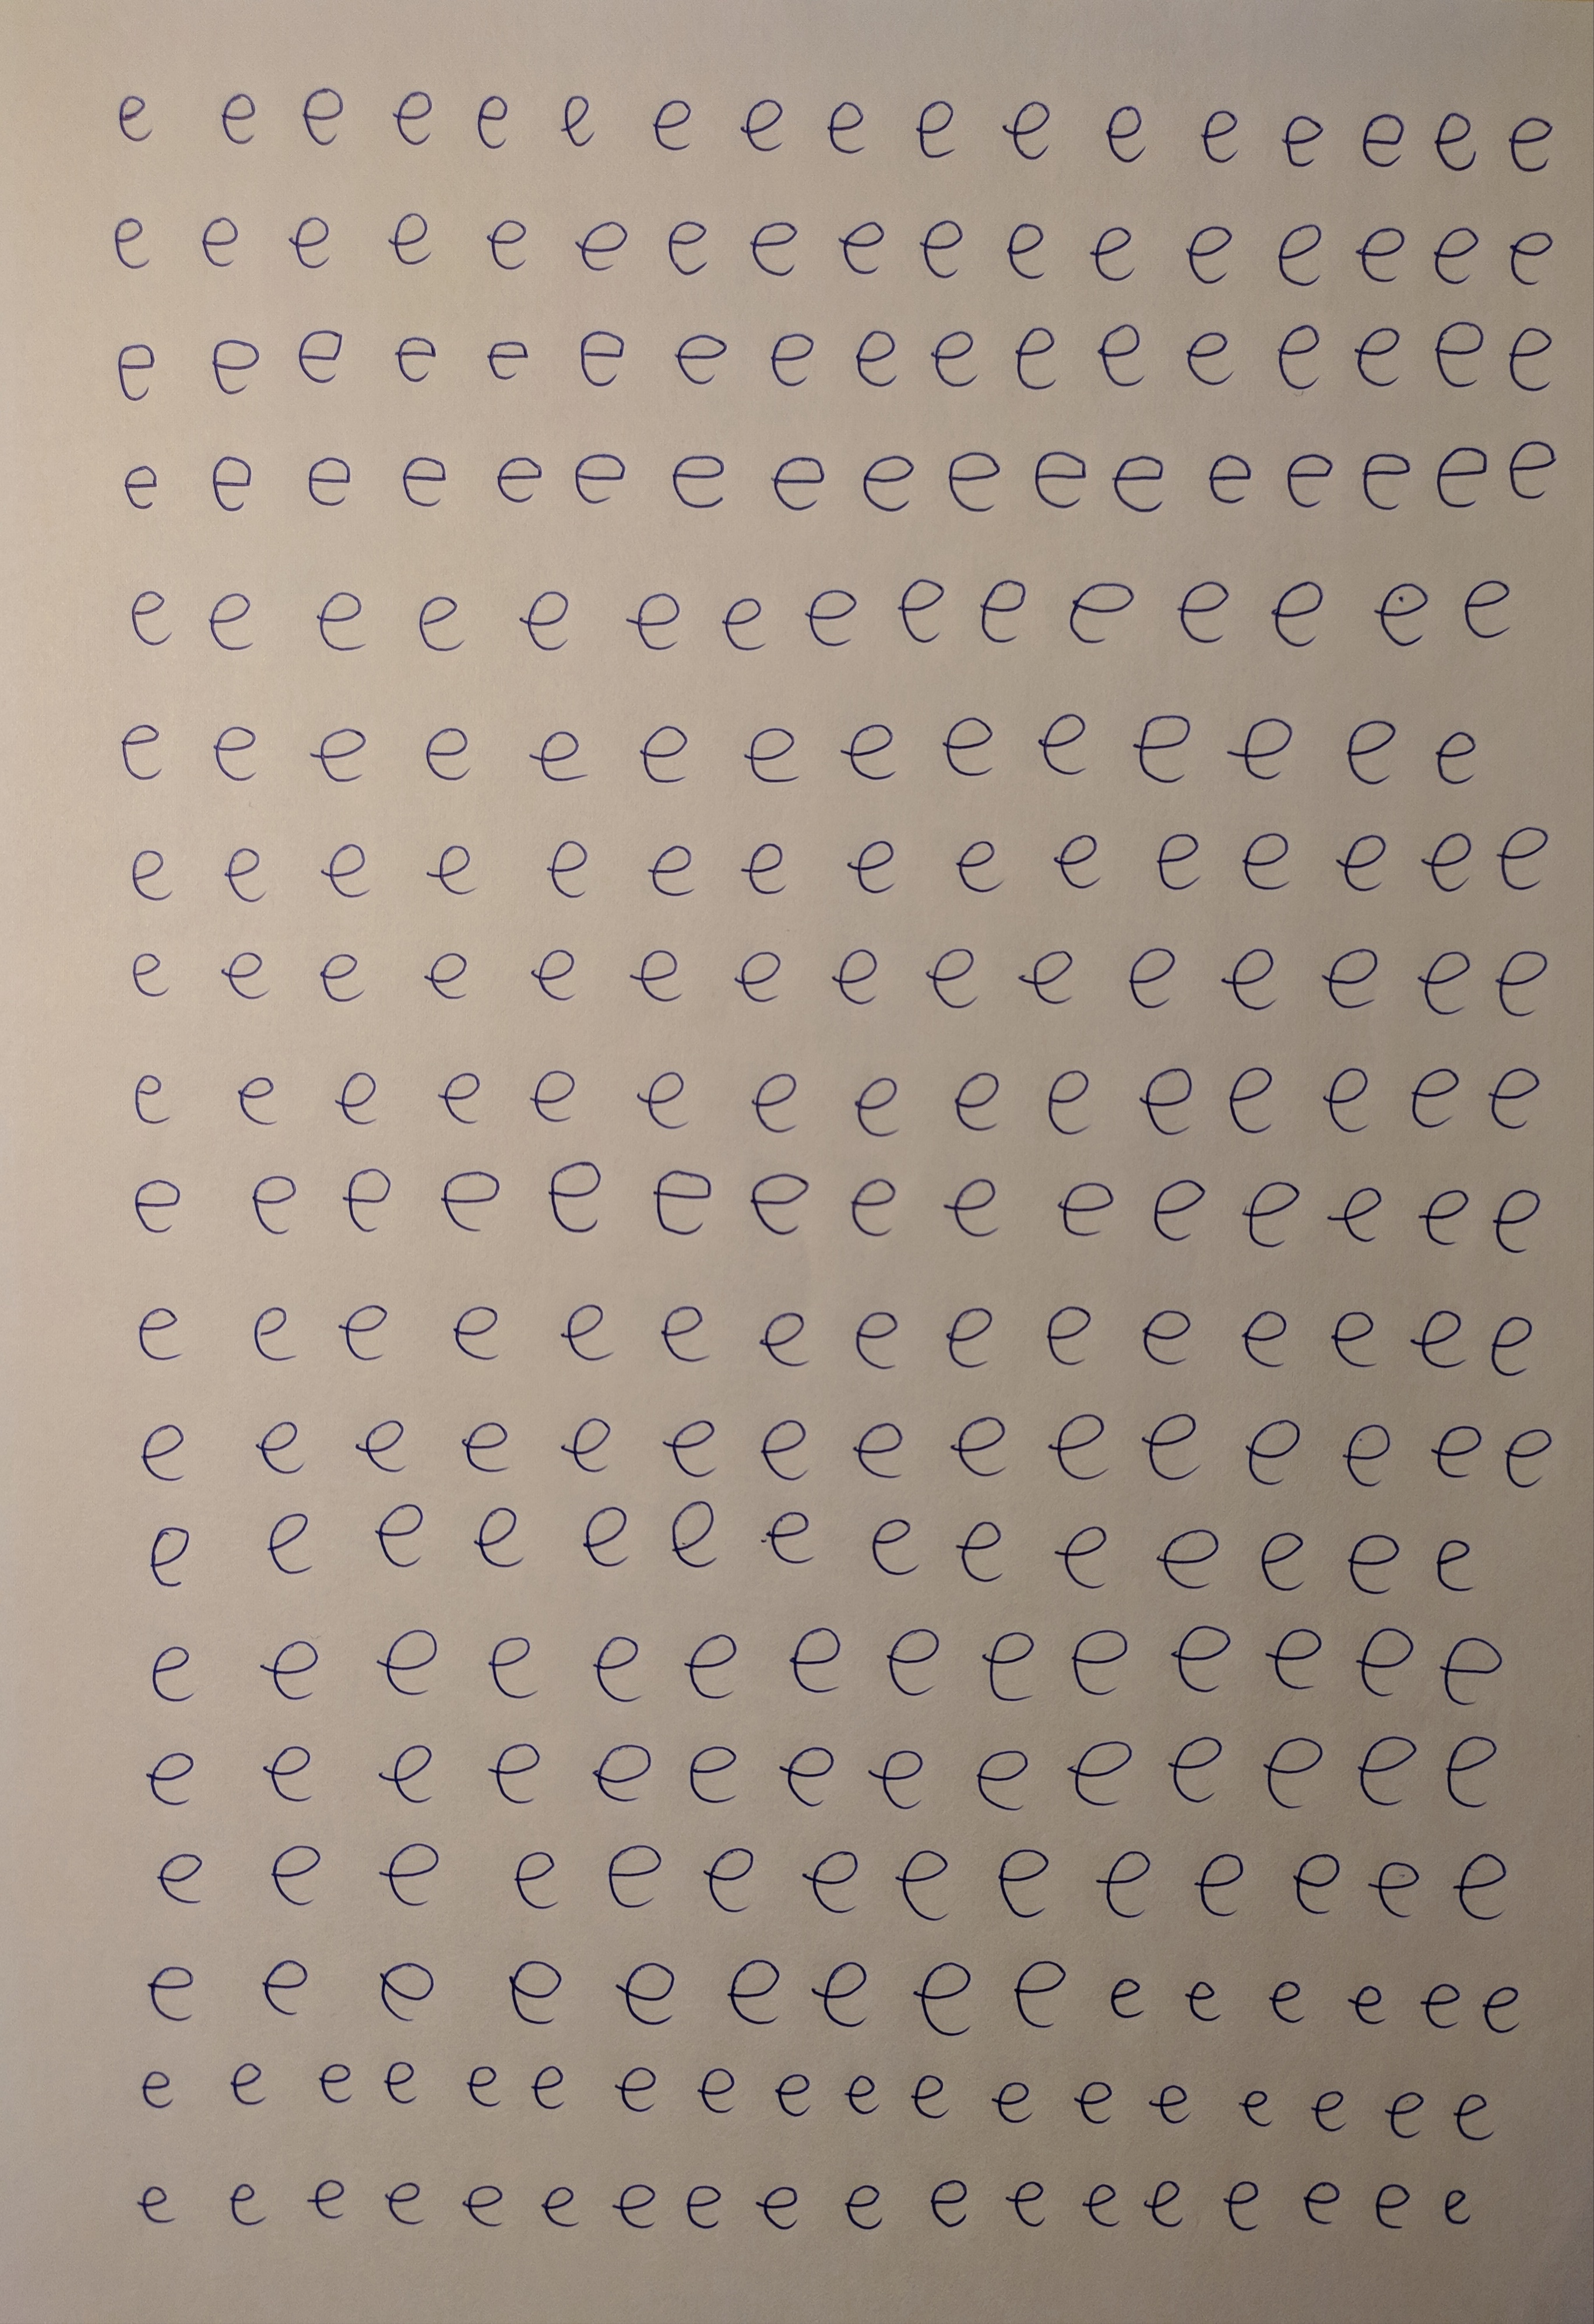 e e e e e e e e e e e e e e e e e
e e e e e e e e e e e e e e e e e
e e e e e e e e e e e e e e e e e
e e e e e e e e e e e e e e e e e
e e e e e e e e e e e e e e e
e e e e e e e e e e e e e e
e e e e e e e e e e e e e e e
e e e e e e e e e e e e e e e
e e e e e e e e e e e e e e e
e e e e e e e e e e e e e e e
e e e e e e e e e e e e e e e
e e e e e e e e e e e e e e e
e e e e e e e e e e e e e e
e e e e e e e e e e e e e e
e e e e e e e e e e e e e e
e e e e e e e e e e e e e e
e e e e e e e e e e e e e e e
e e e e e e e e e e e e e e e e e e
e e e e e e e e e e e e e e e e e e